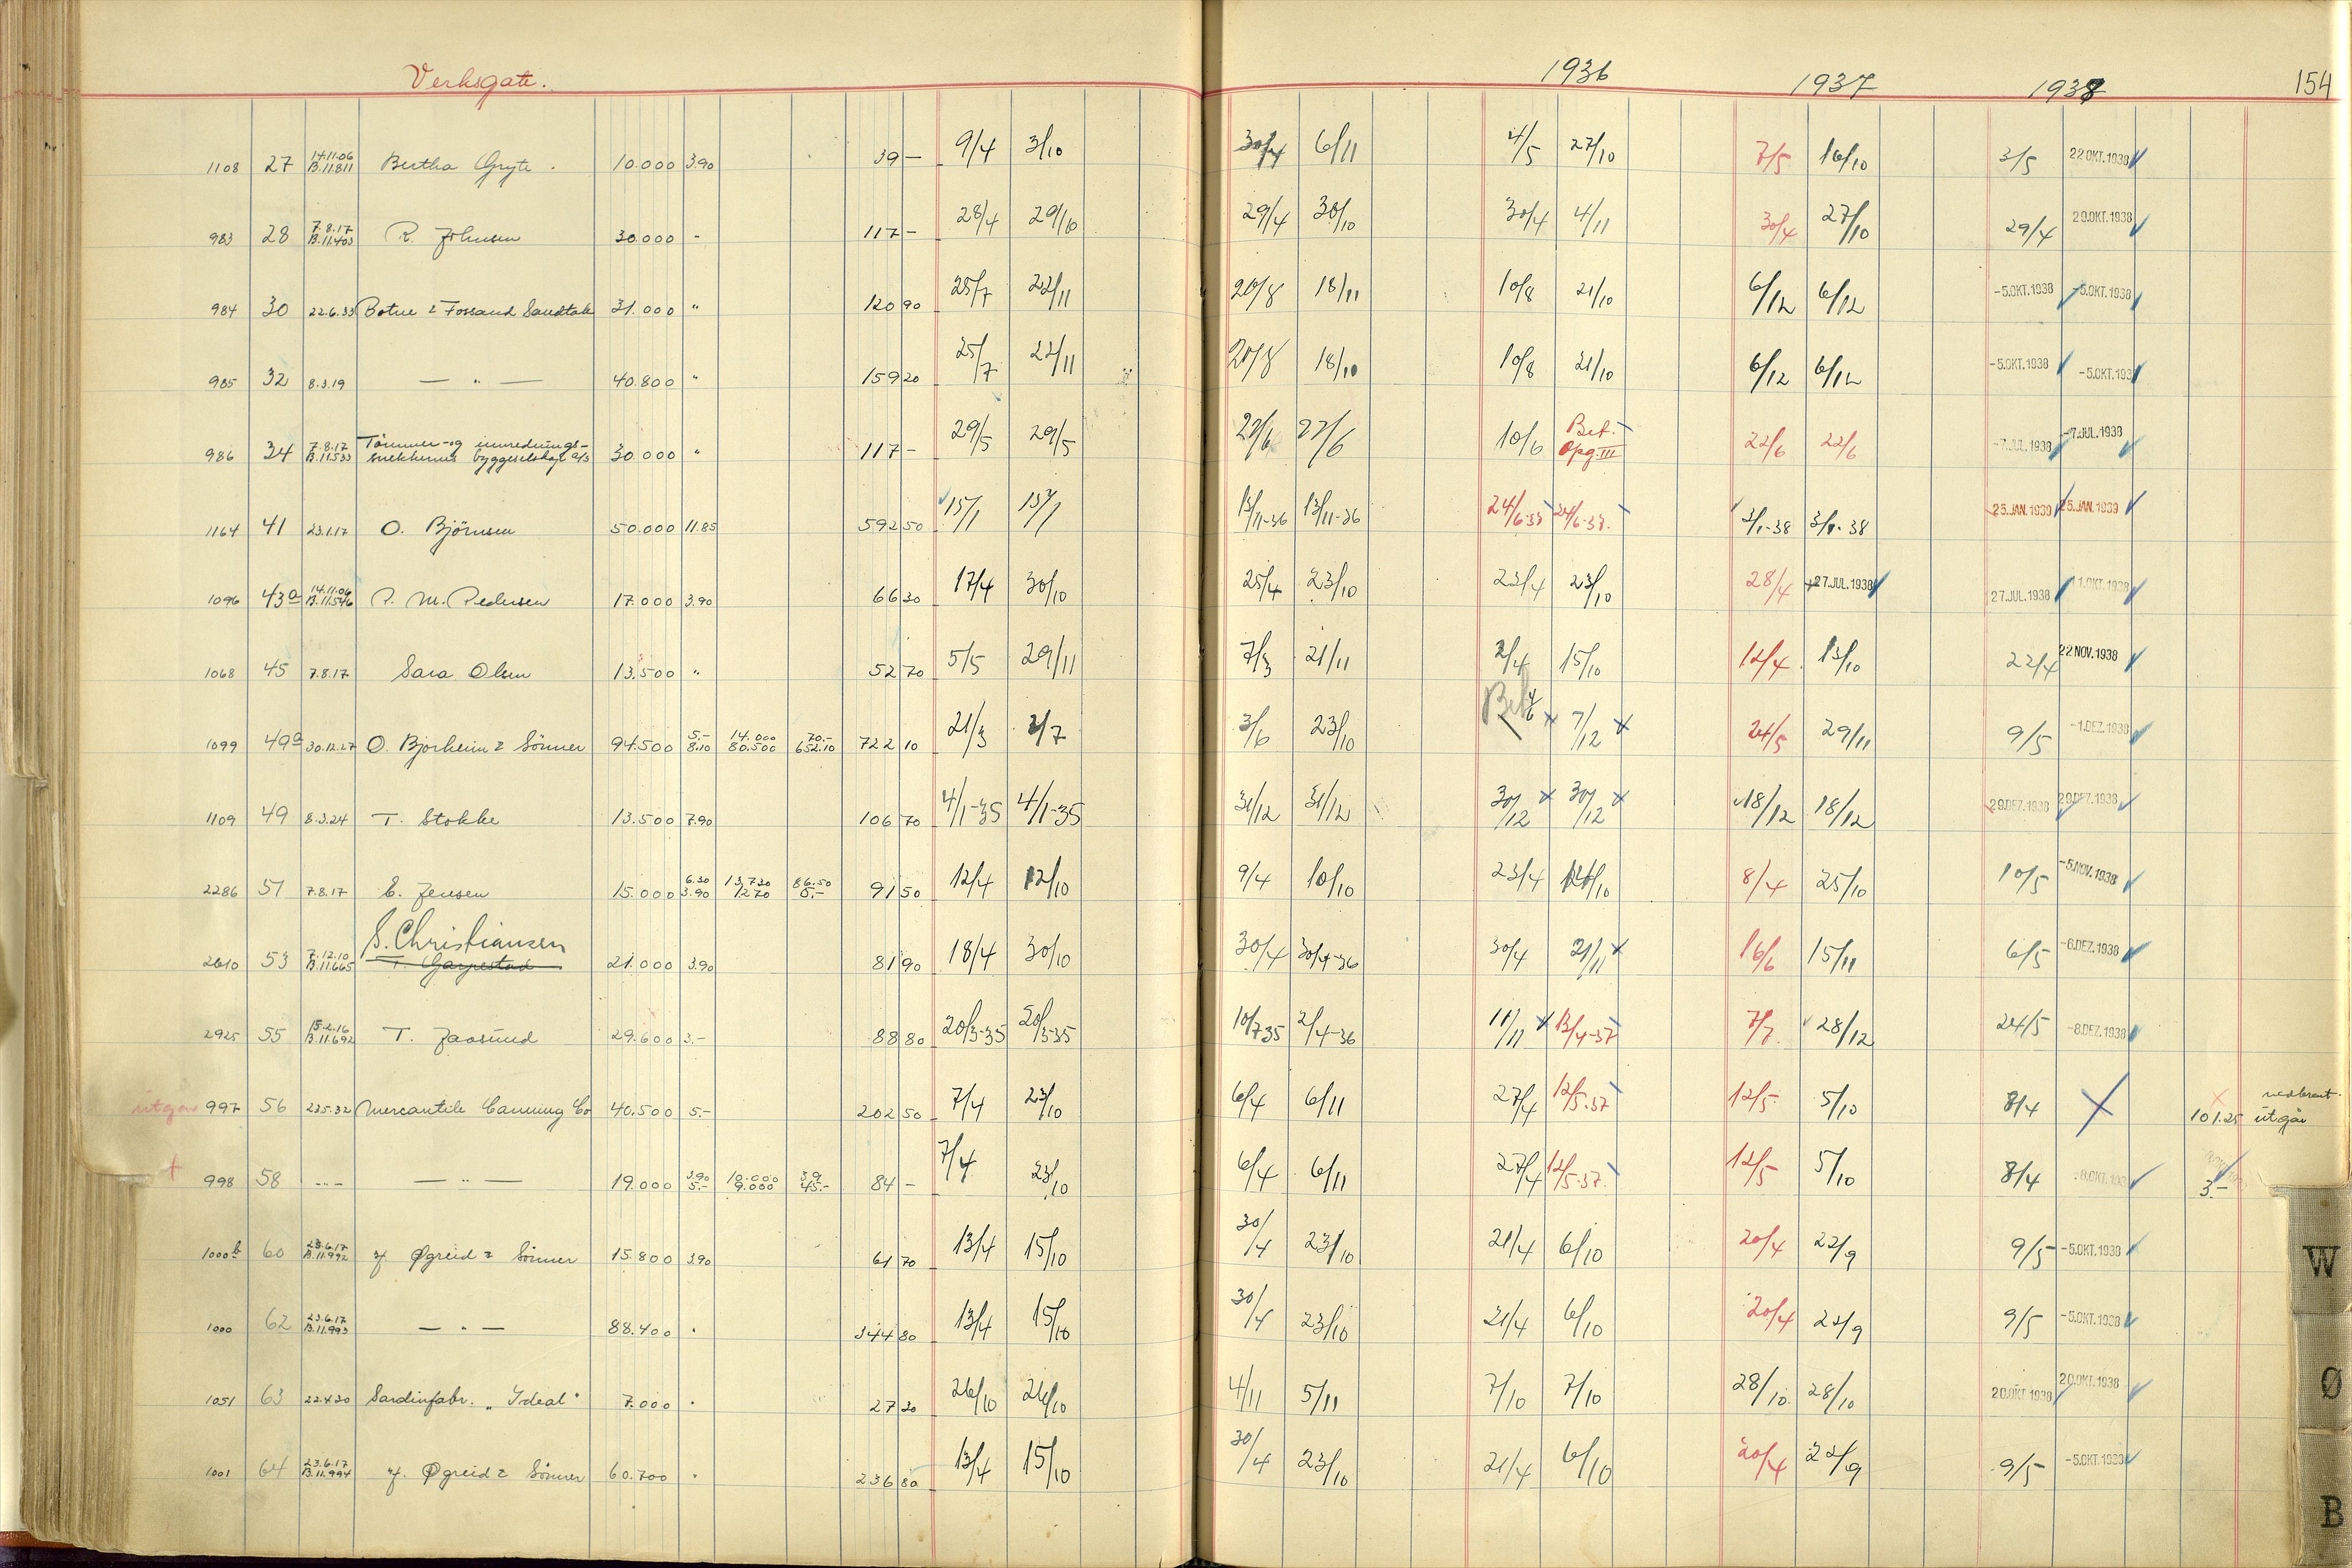 Verksgate. 1936 1937 1938 154
1108 27 14.11.06 B.11811 Bertha Gryte. 10.000 3.90 39 — 9/4 3/10 30/4 6/11 4/5 27/10 7/5 16/10 3/5 22 OKT. 1938
983 28 7.8.17 B.11.403 R. Johnsen 30.000 - 117 - 28/4 29/10 29/4 30/10 30/4 4/11 30/4 27/10 29/4 29.OKT.1938
984 30 22.6.33 Botne & Fossand Sandtak 31.000 " 120 90 25/7 22/11 20/8 18/11 10/8 21/10 6/12 6/12 -5.OKT.1938 -5.OKT.1938
985 32 8.3.19 — " — 40.800 " 159 20 25/7 22/11 20/8 18/10 10/8 21/10 6/12 6/12 -5.OKT.1938 -5.OKT.193
986 34 7.8.17 B.11.533 Tömmer- og innrednings- snekkernes byggeselskap a/s 30.000 " 117 - 29/5 29/5 27/6 27/6 10/6 Bet. Opg. III 22/6 22/6 -7.JUL.1938 -7.JUL.1938
1164 41 23.1.17 O. Björnsen 50.000 11.85 592 50 15/1 15/1 13/11-36 13/11-36 24/6-38 24/6-38. 3/1-38 3/1-38 25.JAN.1939 25.JAN.1939
1096 43a 14.11.06 B.11.546 P. M. Pedersen 17.000 3.90 66 30 17/4 30/10 25/4 23/10 23/4 23/10 28/4 27.JUL.1938 27.JUL.1938 11.OKT.1938
1068 45 7.8.17 Sara Olsen 13.500 " 52 70 5/5 29/11 7/3 21/11 2/4 15/10 12/4 13/10 22/4 22 NOV. 1938
1099 49a 30.12.27 O. Bjorheim & Sönner 94.500 5.- 8.10 14.000 80.500 70.- 652.10 722 10 21/3 2/7 3/6 23/10 Bet 4/6 7/12 24/5 29/11 9/5 -1.DEZ.1938
1109 49 8.3.24 T. Stokke 13.500 7.90 106 70 4/1-35 4/1-35 31/12 31/12 30/12 30/12 18/12 18/12 29.DEZ.1938 29.DEZ.1938
2286 51 7.8.17 E. Jensen 15.000 6.30 3.90 13.730 1270 86.50 5.- 91 50 12/4 12/10 9/4 10/10 23/4 /10 8/4 25/10 10/5 -5.NOV.1938
2610 53 7.12.10 B.11.665 S. Christiansen T. Garpestad 21.000 3.90 81 90 18/4 30/10 30/4 30/4-36 30/4 21/11 16/6 15/11 6/5 -6.DEZ.1938
2925 55 15.2.16 B.11.692 T. Jaasund 29.600 3.- 88 80 20/3-35 20/3-35 10/7 35 2/4-36 11/11 13/4-37 7/7. 28/12 24/5 -8.DEZ.1938
utgår 997 56 23.5.32 Mercantile Canning Co 40.500 5.- 202 50 7/4 23/10 6/4 6/11 27/4 12/5.37 12/5 5/10 8/4 X 101.25 nedbrent. utgår
998 58 -"- — " — 19.000 3.90 5.- 10.000 9.000 39 45.- 84 - 7/4 23/10 6/4 6/11 27/4 12/5.37. 12/5 5/10 8/4 8.OKT.193 3.-
1000b 60 23.6.17 B.11.992 Øgreid & Sönner 15.800 3.90 61 70 13/4 15/10 30/4 23/10 21/4 6/10 20/4 22/9 9/5 -5.OKT.1938
1000 62 23.6.17 B.11.993 — " — 88.400 " 344 80 13/4 15/10 30/4 23/10 21/4 6/10 20/4 22/9 9/5 -5.OKT.1938
1051 63 22.4.20 Sardinfabr. „Ideal" 7.000 " 27 30 26/10 26/10 4/11 5/11 7/10 7/10 28/10 28/10 20.OKT.1938 20.OKT.1938
1001 64 23.6.17 B.11.994 Øgreid & Sönner 60.700 " 236 80 13/4 15/10 30/4 23/10 21/4 6/10 20/4 22/9 9/5 -5.OKT.1938
W
Ø
B